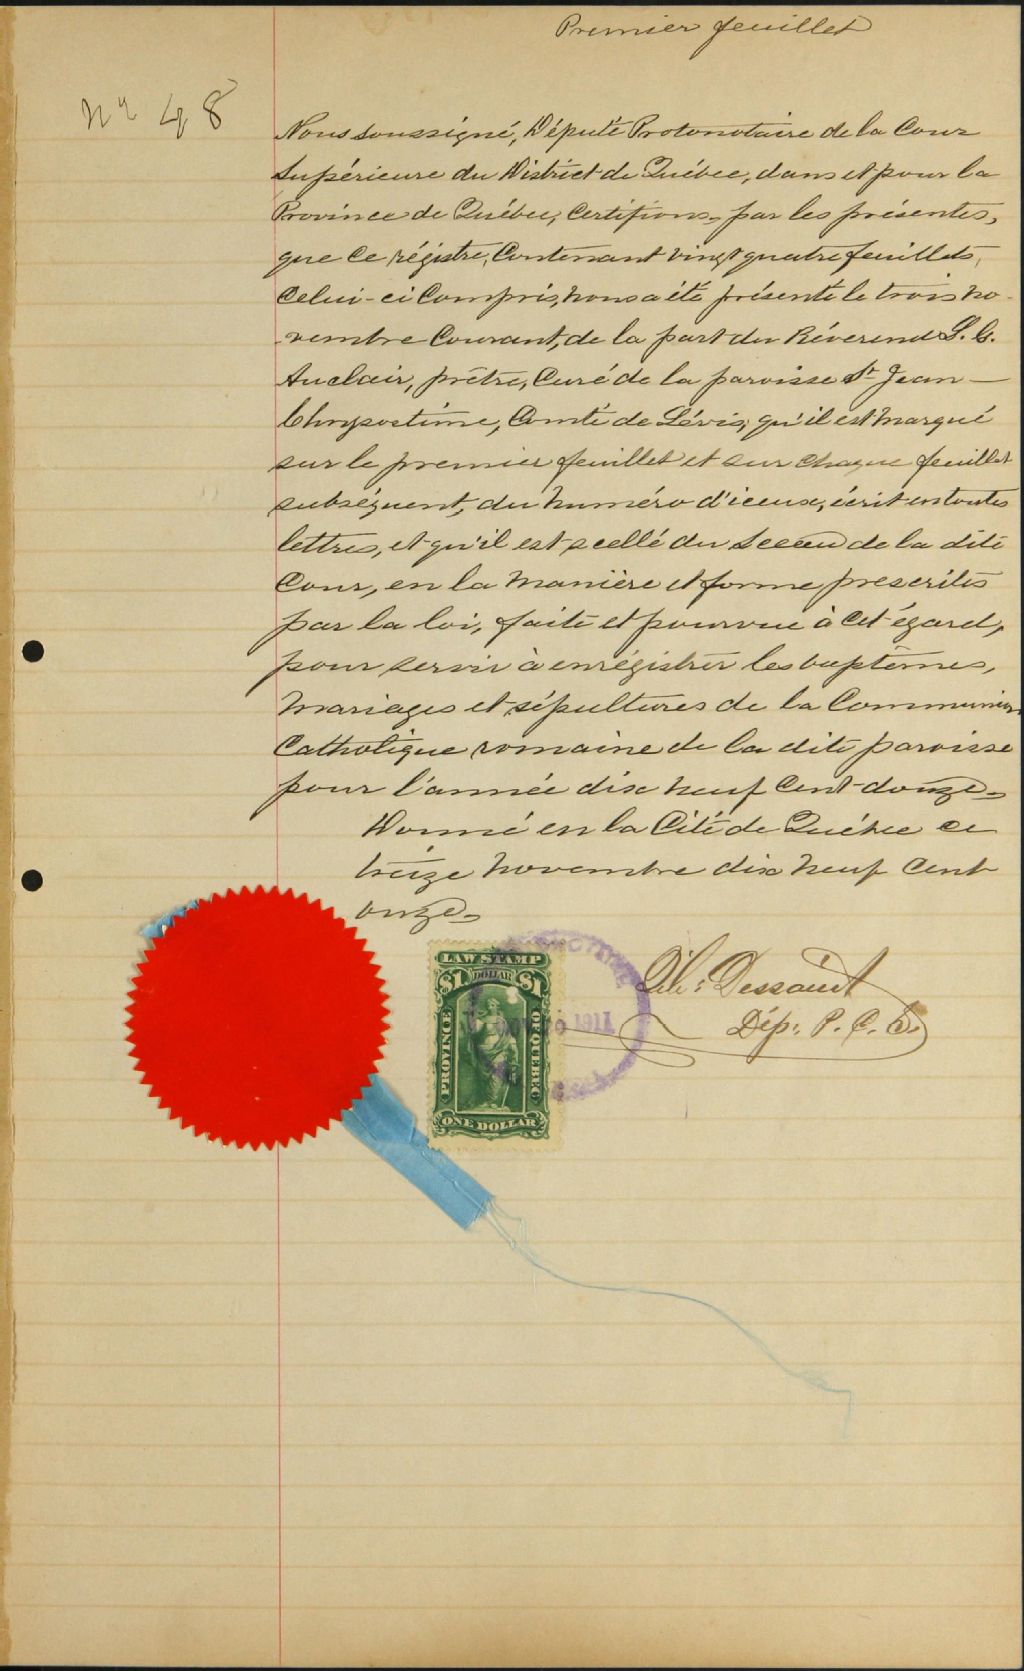 Premier feuillet
No 48
Nous soussigné, Député Protonotaire de la Cour
Supérieure du District de Québec, dans et pour la
Province de Québec, Certifions, par les présentes,
que Ce régistre, Contenant vingt quatre feuillets,
Celui-ci Compris, nous a été présenté le trois no-
vembre Courant, de la part du Révérend
Auclair, prêtre, Curé de la paroisse St Jean
Chrysostôme, Comté de Lévis, qu'il est marqué
sur le premier feuillet et sur chaque feuillet
subséquent, du numéro d'iceux, écrit en toutes
lettres, et qu'il est scellé du Sceau de la dite
Cour, en la manière et forme prescrites
par la loi, faite et pourvue à cet égard,
pour servir à enrégistrer les baptêmes,
mariages et sépultures de la Communion
Catholique romaine de la dite paroisse
pour l'année dix neuf Cent douze.
Donné en la Cité de Québec ce
treize novembre dix neuf Cent
onze.
LAW STAMP
$1 DOLLAR $1
PROVINCE OF QUEBEC
ONE DOLLAR
1911
Dessaint
Dép: P. C. S.